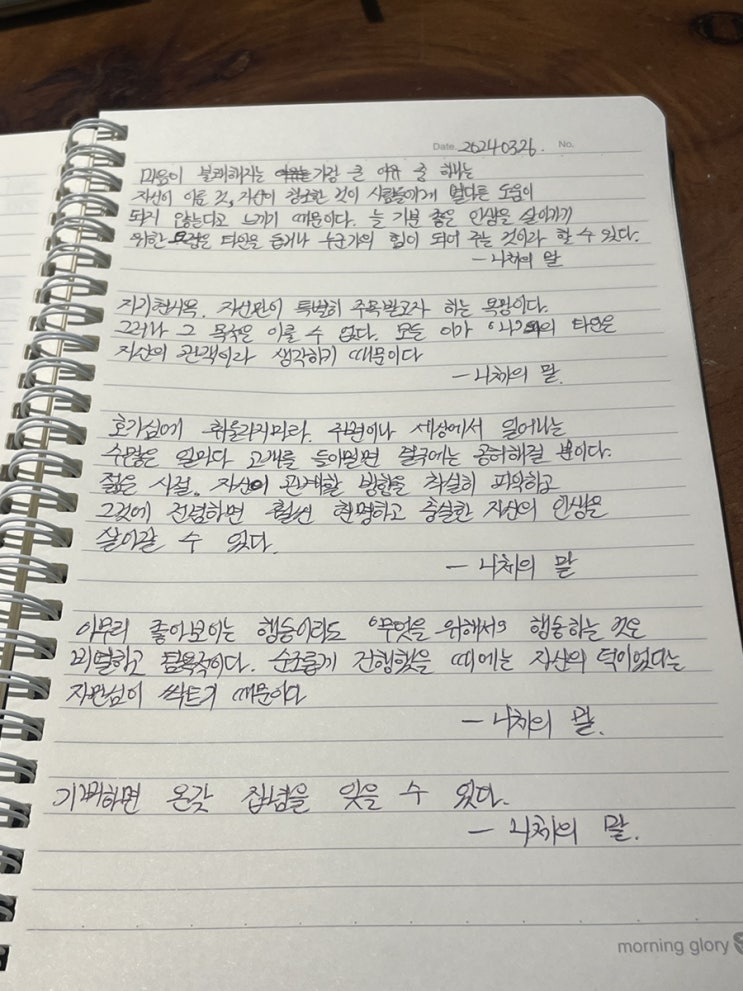 Date. 2024.03.26. No.
마음이 불쾌해지는 가장 큰 이유 중 하나는
자신이 이룬 것, 자신이 창조한 것이 사람들에게 별다른 도움이
되지 않는다고 느끼기 때문이다. 늘 기분 좋은 인생을 살아가기
위한 요점은 타인을 돕거나 누군가의 힘이 되어 주는 것이라 할 수 있다.
— 니체의 말
자기현시욕. 자신만이 특별히 주목받고자 하는 욕망이다.
그러나 그 목적은 이룰 수 없다. 모든 이가 '나' 외의 타인은
자신의 관객이라 생각하기 때문이다
— 니체의 말.
호기심에 휘둘리지마라. 주변이나 세상에서 일어나는
수많은 일마다 고개를 들이밀면 결국에는 공허해질 뿐이다.
젊은 시절. 자신이 관계할 방향을 착실히 파악하고
그것에 전념하면 훨씬 현명하고 충실한 자신의 인생을
살아갈 수 있다.
— 니체의 말
아무리 좋아보이는 행동이라도 '무엇을 위해서' 행동하는 것은
비열하고 탐욕적이다. 순조롭게 진행했을 때에는 자신의 덕이었다는
자만심이 싹트기 때문이다
— 니체의 말.
기뻐하면 온갖 잡념을 잊을 수 있다.
— 니체의 말.
morning glory